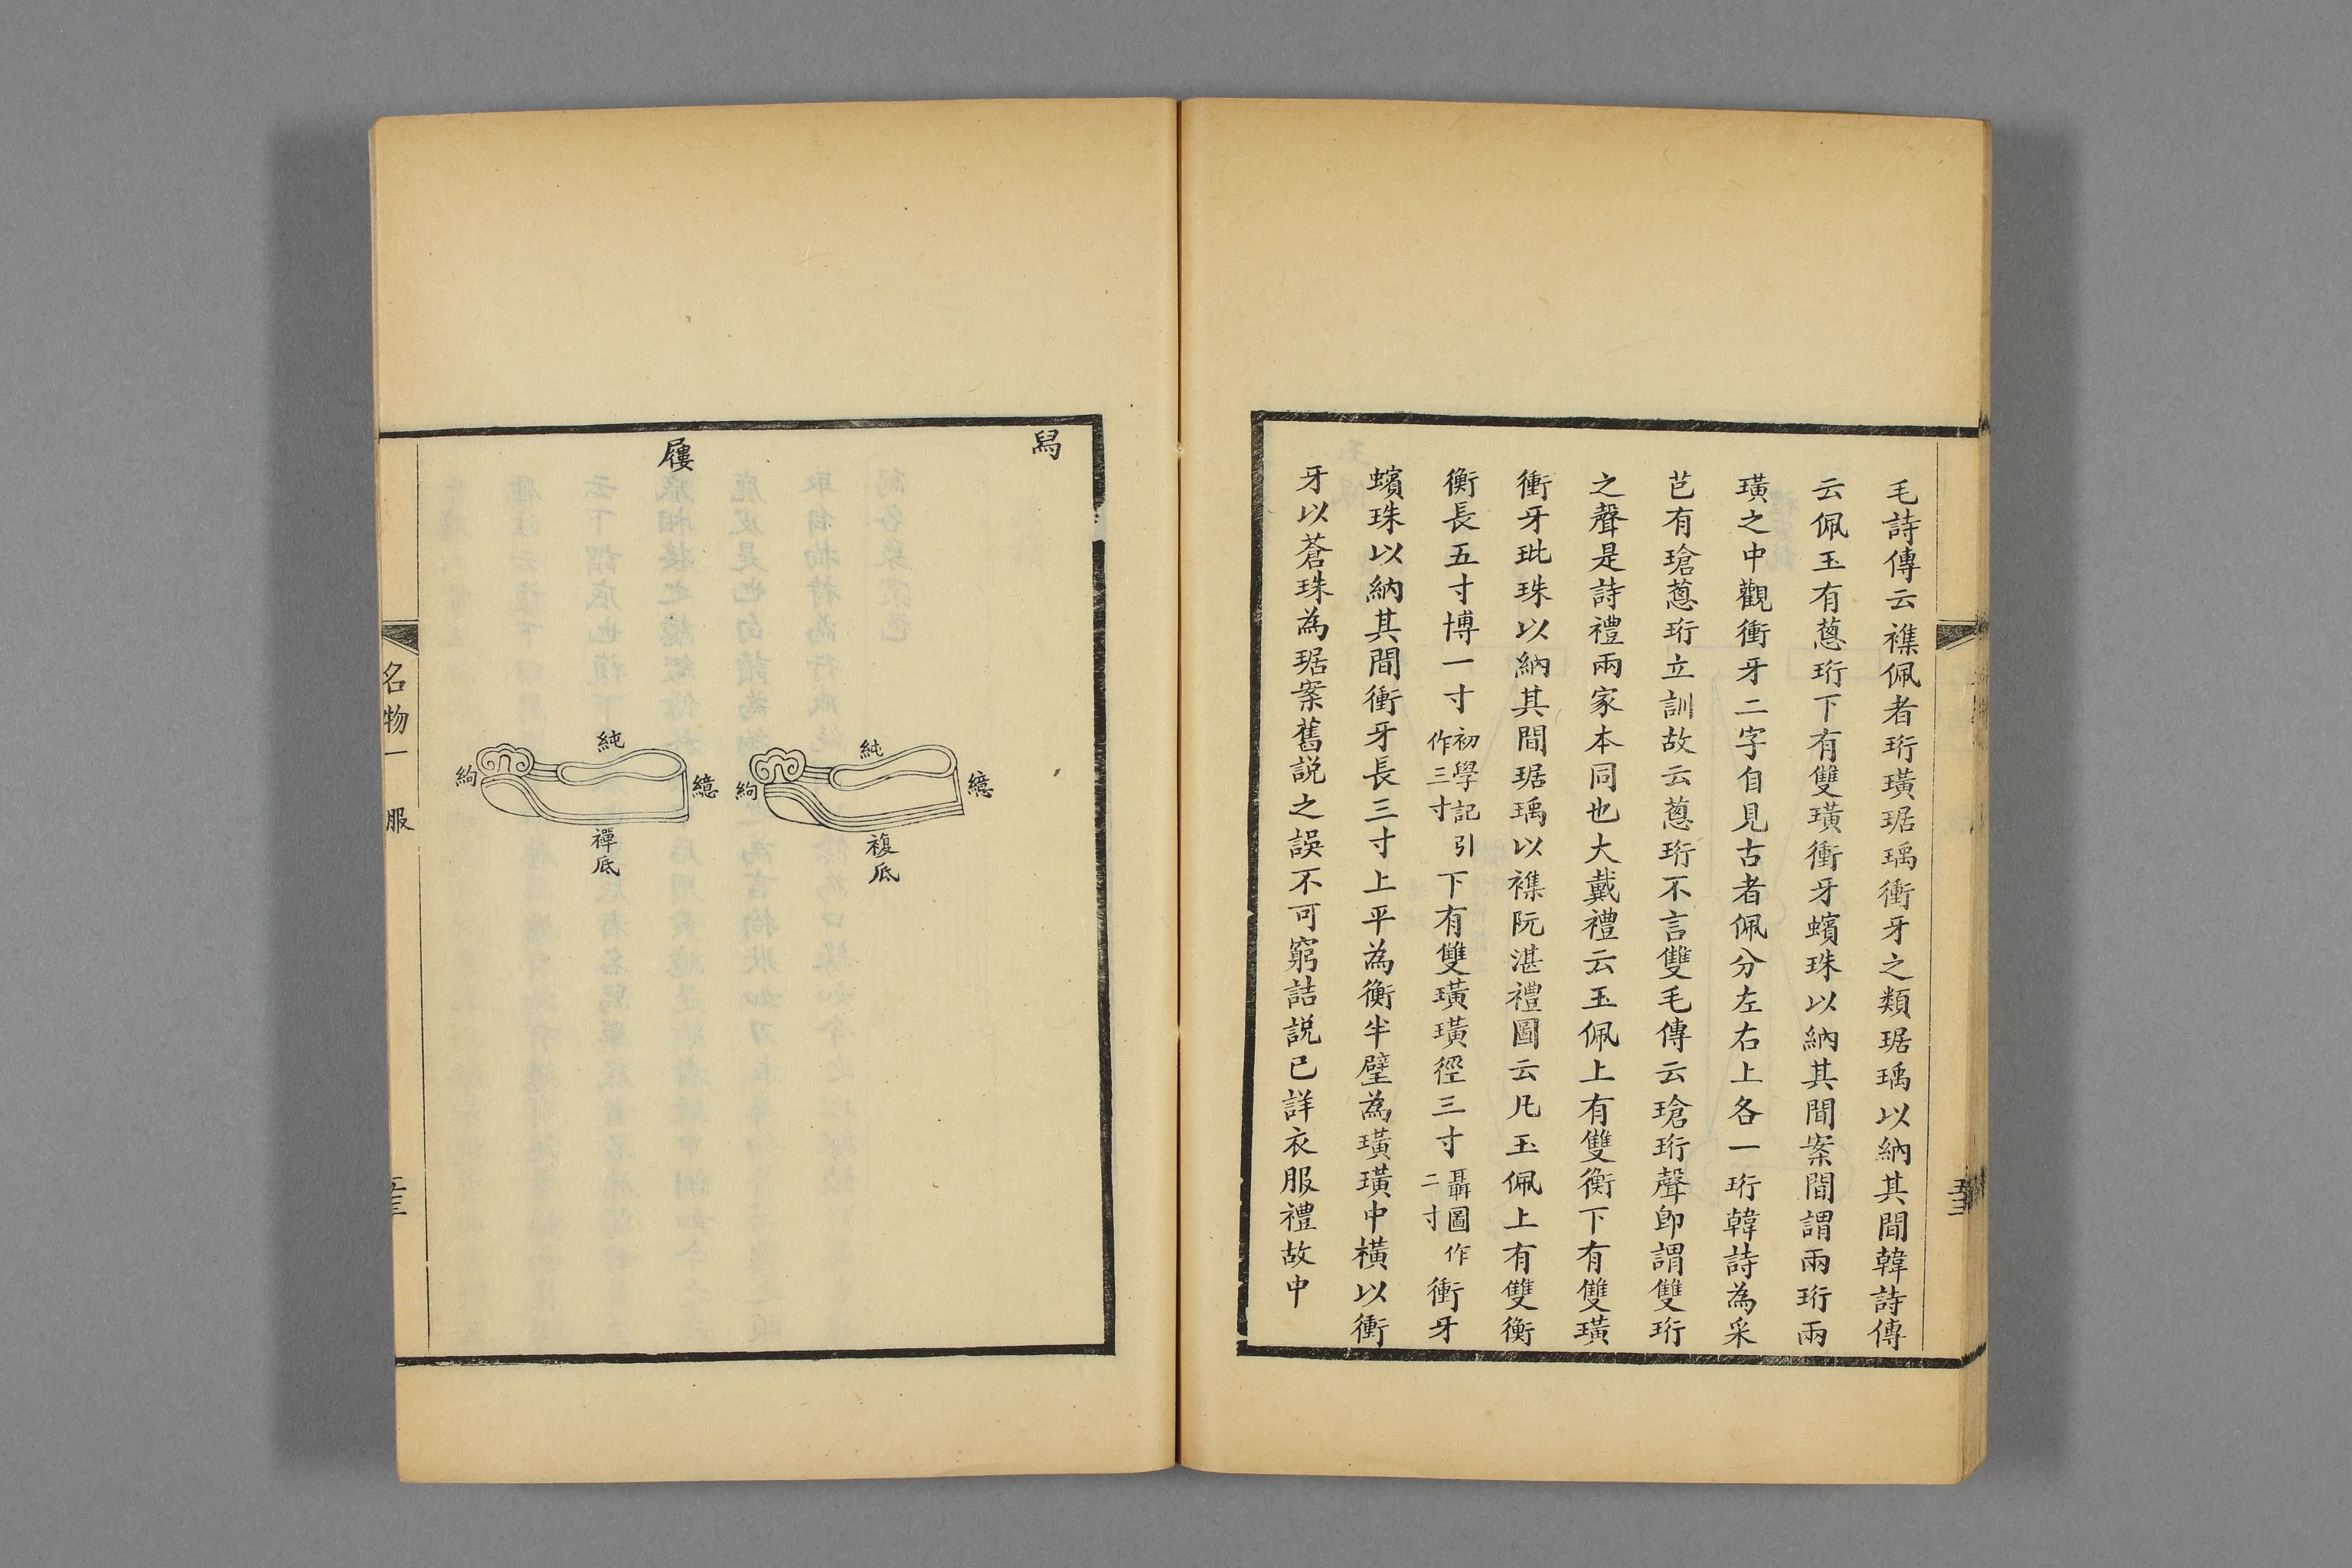 毛詩傳云襍佩者珩璜琚瑀衝牙之類琚瑀以納其間韓詩傳
云佩玉有蔥珩下有雙璜衝牙蠙珠以納其間案間謂兩珩兩
璜之中觀衝牙二字自見古者佩分左右上各一珩韓詩為采
芑有瑲蔥珩立訓故云蔥珩不言雙毛傳云瑲珩聲卽謂雙珩
之聲是詩禮兩家本同也大戴禮云玉佩上有雙衡下有雙璜
衝牙玭珠以納其間琚瑀以襍阮湛禮圖云凡玉佩上有雙衡
衡長五寸博一寸初學記引作三寸下有雙璜璜徑三寸聶圖作二寸衝牙
蠙珠以納其間衝牙長三寸上平為衡半璧為璜璜中橫以衝
牙以蒼珠為琚案舊説之誤不可窮詰説已詳衣服禮故中
舄
純
繶
絇
複底
屨
純
繶
絇
禪底
名物一
服